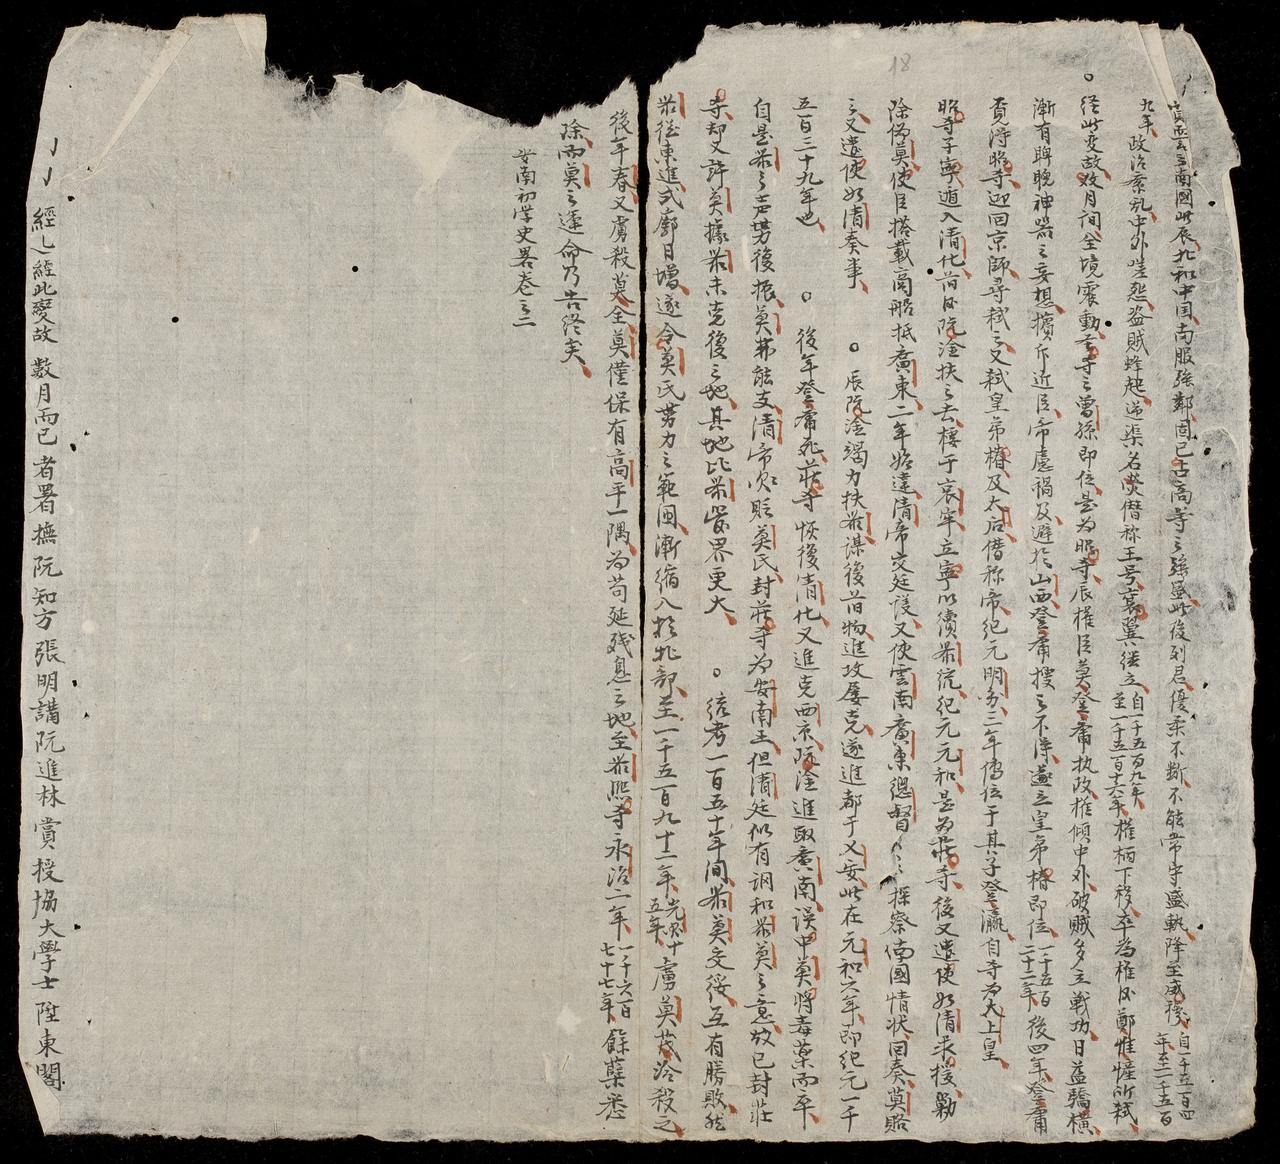 18
南國此辰北和中国南服強鄰固已古高等之強虽此後列君優柔不断不能常守盛執降至威穆自一千五百四年至一千五百
九年政治紊乱中外嗟怨盗賊蜂起逆渠名熒僭称王号襄翼继立自一千五百九年至一千五百十六年權柄下移卒為權臣鄭惟憧所弑
○经此变故数月间全境震動聖寺之曾孫即位是為昭寺辰權臣莫登庸执政權傾中外破賊多立戰功日益驕橫
漸有睥睨神器之妄想擯斥近臣帝慮禍及避於山西登庸搜之不得遂立皇弟椿即位一千五百二十二年後四年登庸
覓得昭寺迎回京師尋弑之又弑皇弟椿及太后僭称帝紀元明务三年傳位于其子登瀛自寺為太上皇
昭寺子寧遁入清化旧臣阮淦扶之去棲于哀牢立寧以續黎统紀元元和是為莊寺後又遣使如清求援勦
除偽莫使臣搭載商船抵廣東二年始達清帝交廷议又使雲南廣東總督〻〻探察南國情状回奏莫賂
之又遣使如清奏事 ○辰阮淦竭力扶黎谋復旧物進攻屡克遂進都于乂安此在元和六年即紀元一千
五百三十九年也 ○後年登庸死莊寺恢復清化又進克西京阮淦進取廣南误中莫将毒藥而卒
自是黎之声势復振莫弗能支清帝貶莫氏封莊寺為安南王但清廷似有调和黎莫之意故已封莊
寺却又許莫據黎未克復之地其地比黎管界更大 ○统考一百五十年间黎莫交綏互有勝敗然
黎往東進式廓日增遂令莫氏势力之範囲漸縮入於北部至一千五百九十二年光興十五年虜莫茂洽殺之
後年春又虜殺莫全莫僅保有高平一隅為苟延残息之地至黎熙寺永治二年一千六百七十七年餘孽悉
除而莫之運命乃告终矣
安南初学史畧卷之二
經〻經此變故 數月而已 者署撫阮知方張明講阮進林賞授協大學士陞東閣